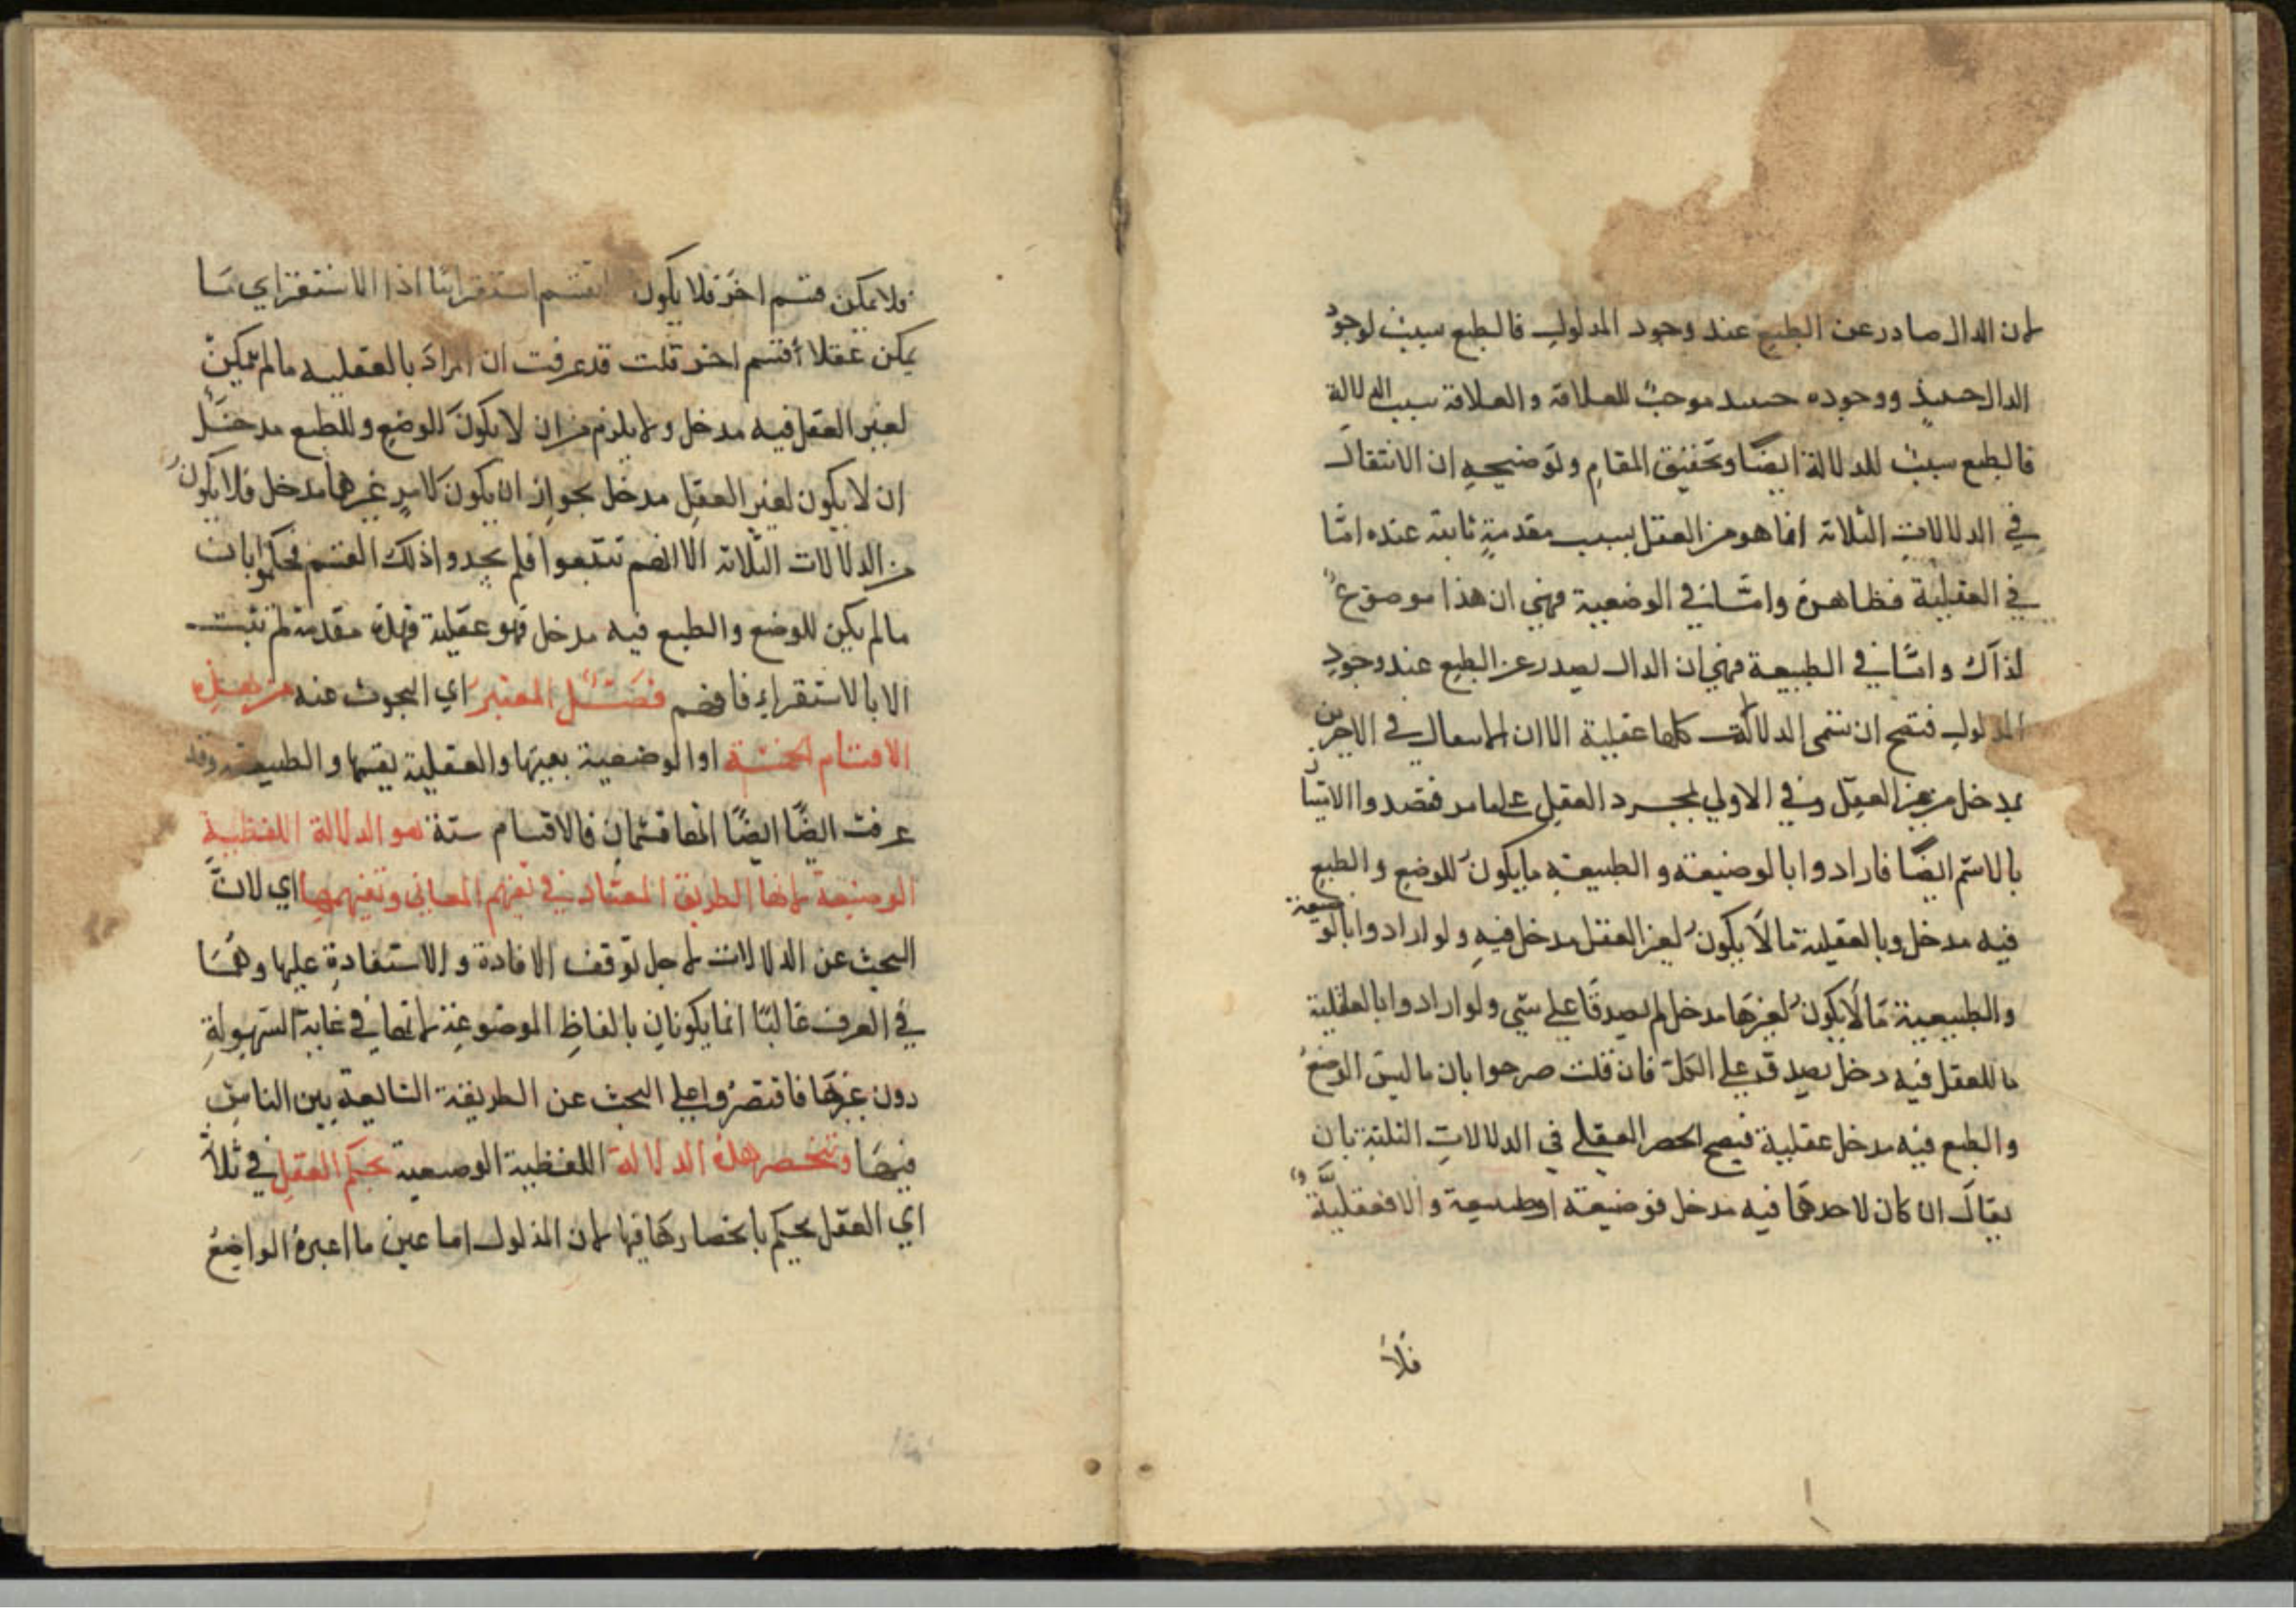 لان الدال صادر عن الطبع عند وجود المدلول فالطبع سبب لوجود
الدال حينئذ ووجوده حينئذ موجب للعلاقة والعلاقة سبب الدلالة
فالطبع سبب للدلالة ايضًا وتحقيق المقام وتوضيحه ان الانتقال
في الدلالات الثلاثة انما هو من العقل بسبب مقدمةٍ ثابتة عنده امّا
في العقلية فظاهرة وامّا في الوضعية فهي ان هذا موضوع
لذاك وامّا في الطبيعة فهي ان الدال يصدر عن الطبع عند وجود
المدلول فتصح ان تسمى الدلالات كلها عقلية الا ان في الاخيرين
بدخل من غير العقل وفي الاولي بمجرد العقل على ما مر فقصدوا
بالاسم ايضًا فارادوا بالوضيعة والطبيعة ما يكون للوضع والطبع
فيه مدخل وبالعقلية ما لا يكون لغير العقل مدخل فيه ولو ارادوا بالوضعية
والطبيعية ما لا يكون لغيرها مدخل لم يصدقا على شي ولو ارادوا بالعقلية
ما للعقل فيه دخل يصدق على الكل فان قلت صرحوا بان ما ليس الوضع
والطبع فيه مدخل عقلية فيصح الحصر العقلي في الدلالات الثلثة بان
يقال ان كان لاحدهما فيه مدخل فوضيعة او طبيعة والا فعقليّة
فلا
فلا يمكن قسم اخر فلا يكون القسم استقرائيا اذا الاستقراي مَا
يمكن عقلا قسم اخر قلت قد عرفت ان المراد بالعقليه ما لم يمكن
لغير العقل فيه مدخل ولا يلزم من ان لا يكون للوضع وللطبع مدخل
ان لا يكون لغير العقل مدخل بجواز ان يكون لامرٍ غيرهما مدخل فلا يكون
من الدلالات الثلاثة الا انهم تتبعوا فلم يجدوا ذلك القسم فحكموا بان
ما لم يكن للوضع والطبع فيه مدخل فهو عقلية فهذه مقدمة لم تثبت
الا بالاستقراء فافهم فصل المعتبر اي البحوث عنه من هذه
الاقسام الخمسة او الوضعية بعينها والعقلية بقسمها والطبيعة وقد
عرفت ايضًا ايضًا انها قسمان فالاقسام ستة هو الدلالة اللفظية
الوضيعة لانها الطريق المعتاد في تفهم المعاني وتفهيمها اي لانّ
البحث عن الدلالات لاجل توقف الافادة والاستفادة عليها وهُمَا
في العرف غالبًا انما يكونان بالفاظ الموضوعة لانها في غاية السهولة
دون غيرها فاقتصروا على البحث عن الطريقة الشايعة بين الناس
فيهَا وتنحصر هذه الدلالة اللفظية الوضعية بحكم العقل في ثلاثة
اي العقل يحكم بانحصارها فيها لان المدلول اما عين ما اعبره الواضع